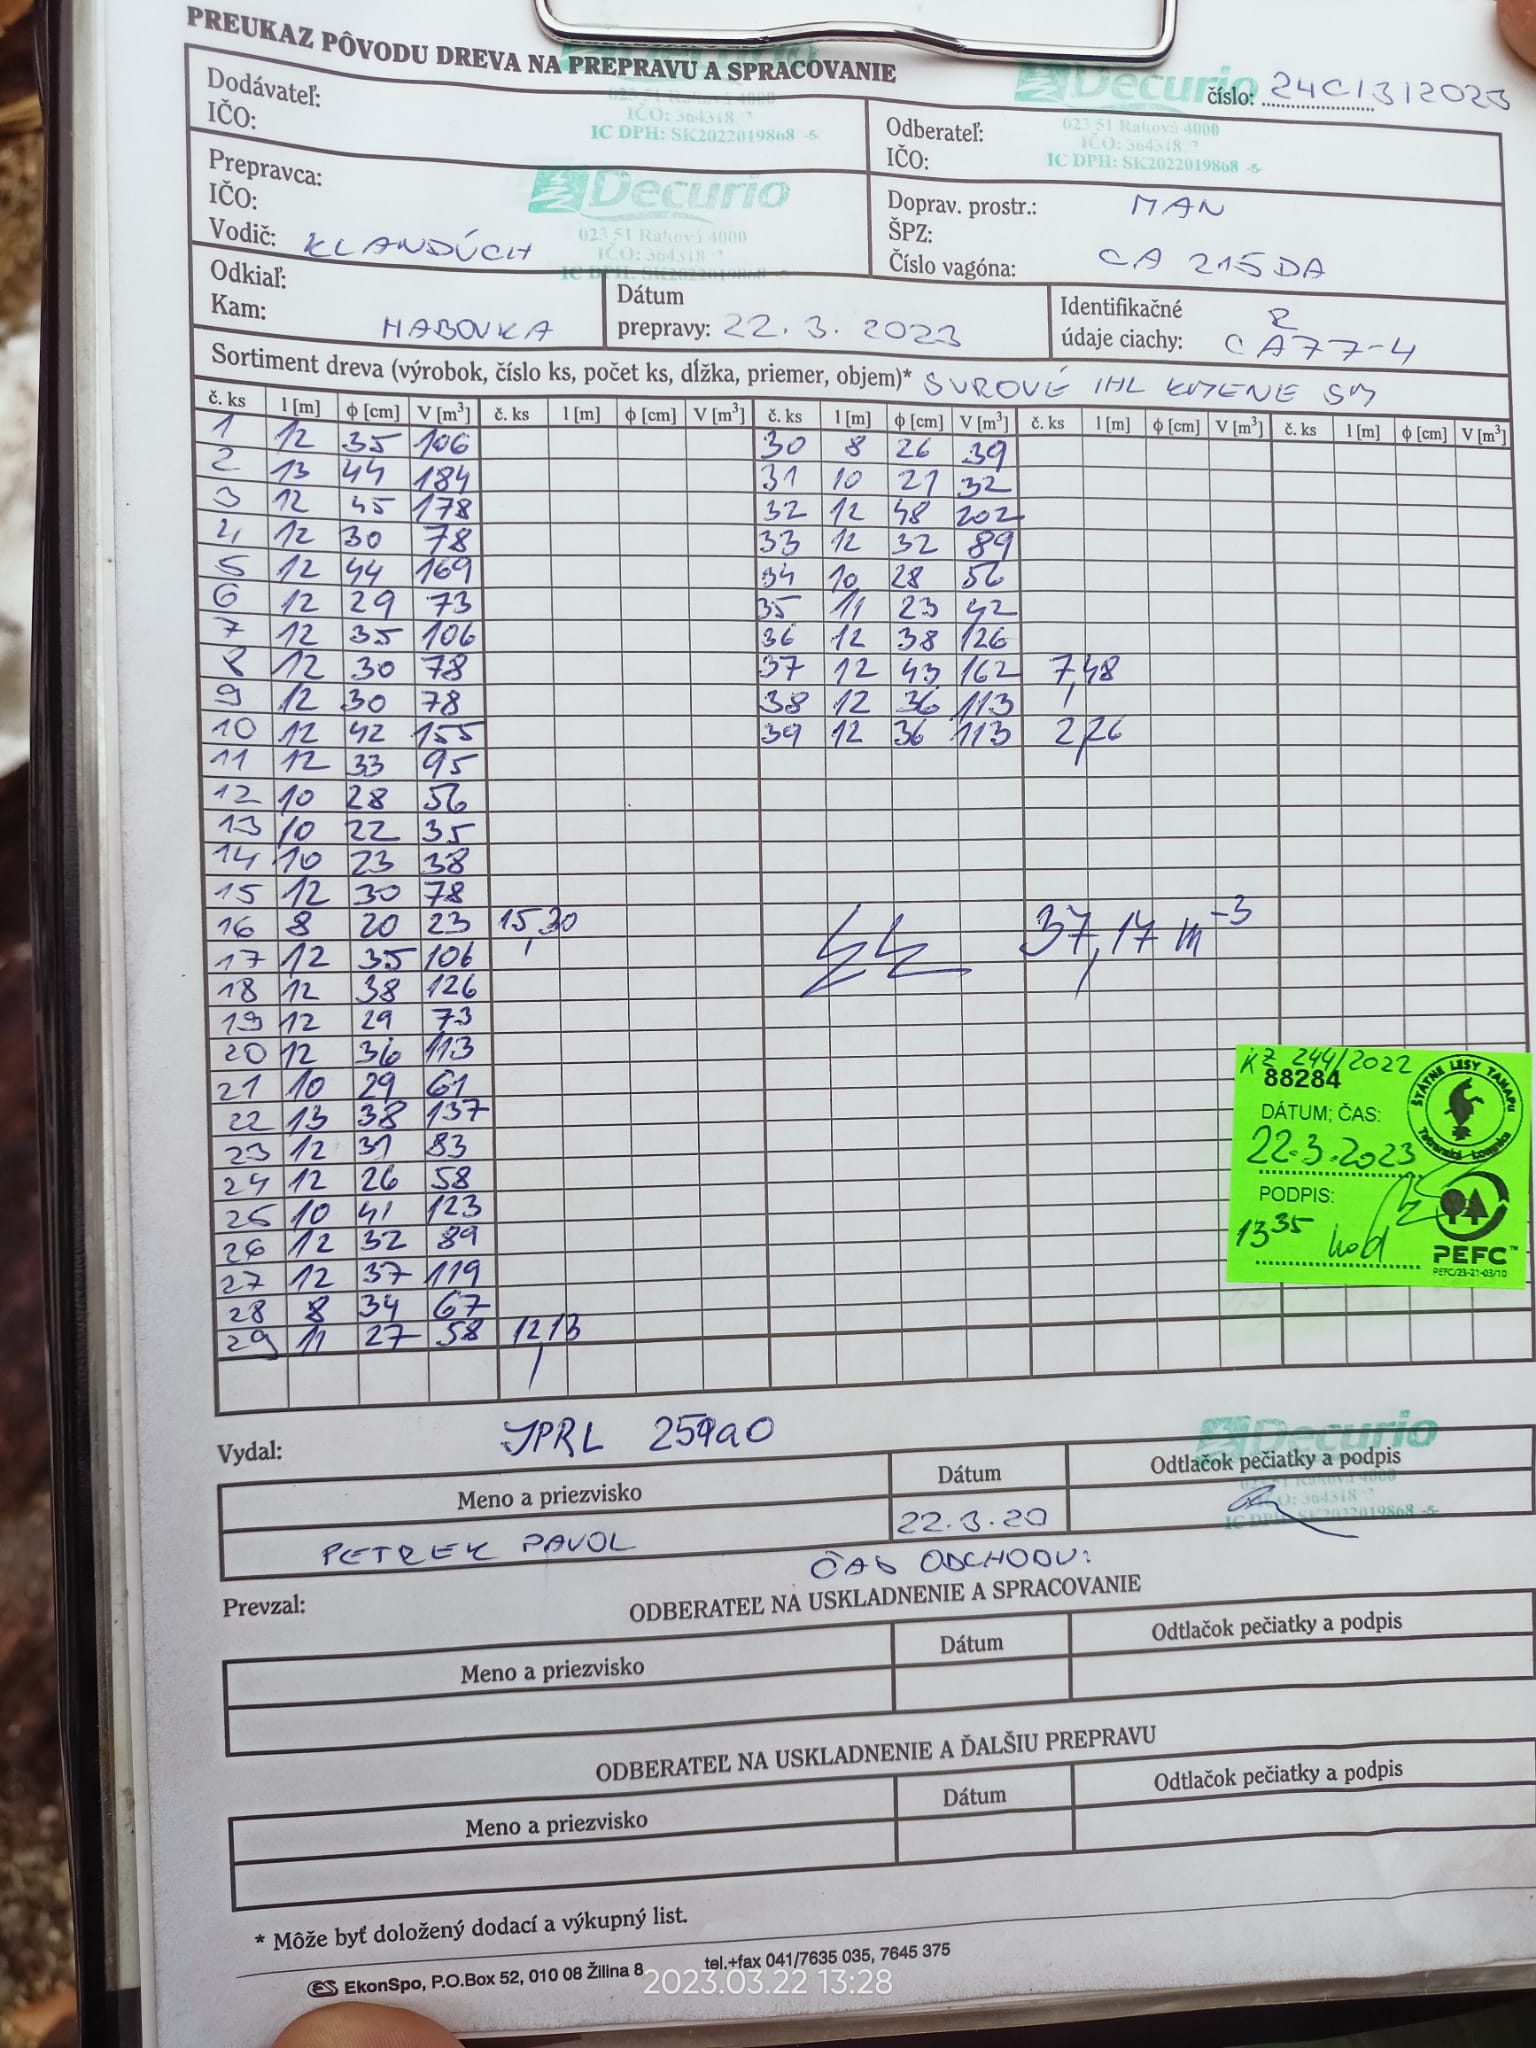 PREUKAZ PÔVODU DREVA NA PREPRAVU A SPRACOVANIE
Decurio
číslo: 24C/3/2023
Dodávateľ:
IČO:
023 51 Raková 4000
IČO: 364318
IC DPH: SK2022019868 -5-
Odberateľ:
IČO:
023 51 Raková 4000
IČO: 364318
IC DPH: SK2022019868 -5-
Prepravca:
IČO:
Vodič: KLANDÚCH
Decurio
023 51 Raková 4000
IČO: 364318
IC DPH: SK2022019868
Doprav. prostr.: MAN
ŠPZ:
Číslo vagóna: CA 215DA
Odkiaľ:
Kam: HABOVKA
Dátum
prepravy: 22.3.2023
Identifikačné R
údaje ciachy: CA77-4
Sortiment dreva (výrobok, číslo ks, počet ks, dĺžka, priemer, objem)* SUROVÉ IHL KMENE SM
č. ks l [m] ϕ [cm] V [m³] č. ks l [m] ϕ [cm] V [m³] č. ks l [m] ϕ [cm] V [m³] č. ks l [m] ϕ [cm] V [m³] č. ks l [m] ϕ [cm] V [m³]
1 12 35 106 30 8 26 39
2 13 44 184 31 10 21 32
3 12 45 178 32 12 48 202
4 12 30 78 33 12 32 89
5 12 44 169 34 10 28 56
6 12 29 73 35 11 23 42
7 12 35 106 36 12 38 126
8 12 30 78 37 12 43 162 7,48
9 12 30 78 38 12 36 113
10 12 42 155 39 12 36 113 2,26
11 12 33 95
12 10 28 56
13 10 22 35
14 10 23 38
15 12 30 78
16 8 20 23 15,30 37,17 m-3
17 12 35 106
18 12 38 126
19 12 29 73
20 12 36 113
21 10 29 61
22 13 38 137
23 12 31 83
24 12 26 58
25 10 41 123
26 12 32 89
27 12 37 119
28 8 34 67
29 11 27 58 12,13
KZ 244/2022
88284
DÁTUM; ČAS:
22.3.2023
PODPIS:
13 35 hod
ŠTÁTNE LESY TANAPu
Tatranská Lomnica
PEFC™
PEFC/23-21-03/10
JPRL 259a0
Vydal:
Decurio
Meno a priezvisko Dátum Odtlačok pečiatky a podpis
PETREK PAVOL 22.3.20
IČO: 364318
IC DPH: SK2022019868 -5-
ČAS ODCHODU:
Prevzal:
ODBERATEĽ NA USKLADNENIE A SPRACOVANIE
Meno a priezvisko Dátum Odtlačok pečiatky a podpis
ODBERATEĽ NA USKLADNENIE A ĎALŠIU PREPRAVU
Meno a priezvisko Dátum Odtlačok pečiatky a podpis
* Môže byť doložený dodací a výkupný list.
ES EkonSpo, P.O.Box 52, 010 08 Žilina 8 tel.+fax 041/7635 035, 7645 375
2023.03.22 13:28